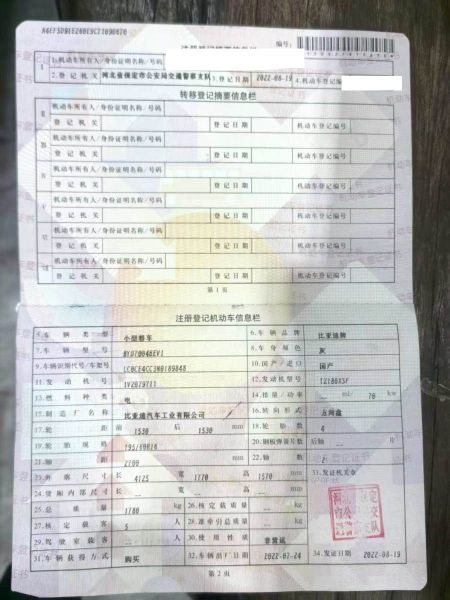 注册登记摘要信息栏
编号:
1.机动车所有人/身份证明名称/号码
2.登记机关 河北省保定市公安局交通警察支队 3.登记日期 2022-08-19 4.机动车登记编号
转移登记摘要信息栏
机动车所有人/身份证明名称/号码
登记机关 登记日期 机动车登记编号
机动车所有人/身份证明名称/号码
登记机关 登记日期 机动车登记编号
机动车所有人/身份证明名称/号码
登记机关 登记日期 机动车登记编号
机动车所有人/身份证明名称/号码
登记机关 登记日期 机动车登记编号
机动车所有人/身份证明名称/号码
登记机关 登记日期 机动车登记编号
第1页
注册登记机动车信息栏
5.车辆类型 小型轿车 6.车辆品牌 比亚迪牌
7.车辆型号 8.车身颜色 灰
9.车辆识别代号/车架号 10.国产/进口 国产
11.发动机号 12.发动机型号 TZ180XSF
13.燃料种类 电 14.排量/功率 -- ml/ 70 kw
15.制造厂名称 比亚迪汽车工业有限公司 16.转向形式 方向盘
17.轮距 前 1530 后 1530 mm 18.轮胎数 4
19.轮胎规格 195/60R16 20.钢板弹簧片数 后轴 -- 片
21.轴距 2700 mm 22.轴数 2
23.外廓尺寸 长 4125 宽 1770 高 1570 mm 33.发证机关章
24.货厢内部尺寸 长 -- 宽 -- 高 -- mm
25.总质量 kg 26.核定载质量 -- kg
27.核定载客 5 人 28.准牵引总质量 -- kg
29.驾驶室载客 -- 人 30.使用性质 非营运
31.车辆获得方式 购买 32.车辆出厂日期 2022-07-24 34.发证日期 2022-08-19
第2页